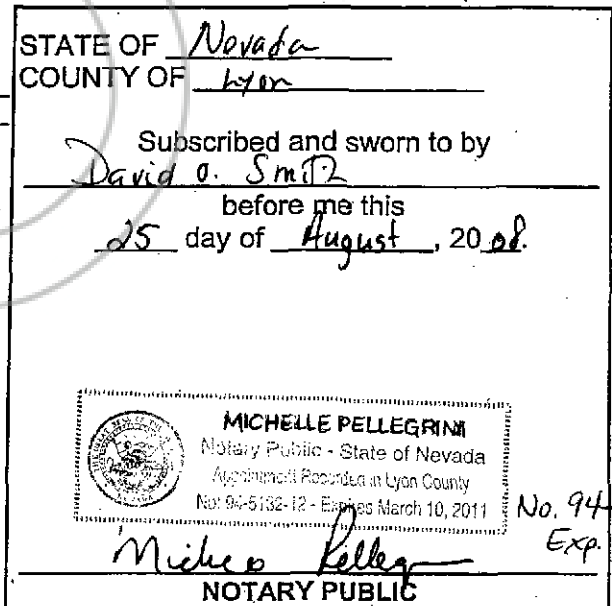 STATE OF Nevada
COUNTY OF Lyon
Subscribed and sworn to by
David O. Smith
before me this
25 day of August, 2008.
MICHELLE PELLEGRINI
Notary Public - State of Nevada
Appointment Recorded in Lyon County
No: 94-5132-12 - Expires March 10, 2011
No. 94-
Exp.
Michee Pellegr
NOTARY PUBLIC